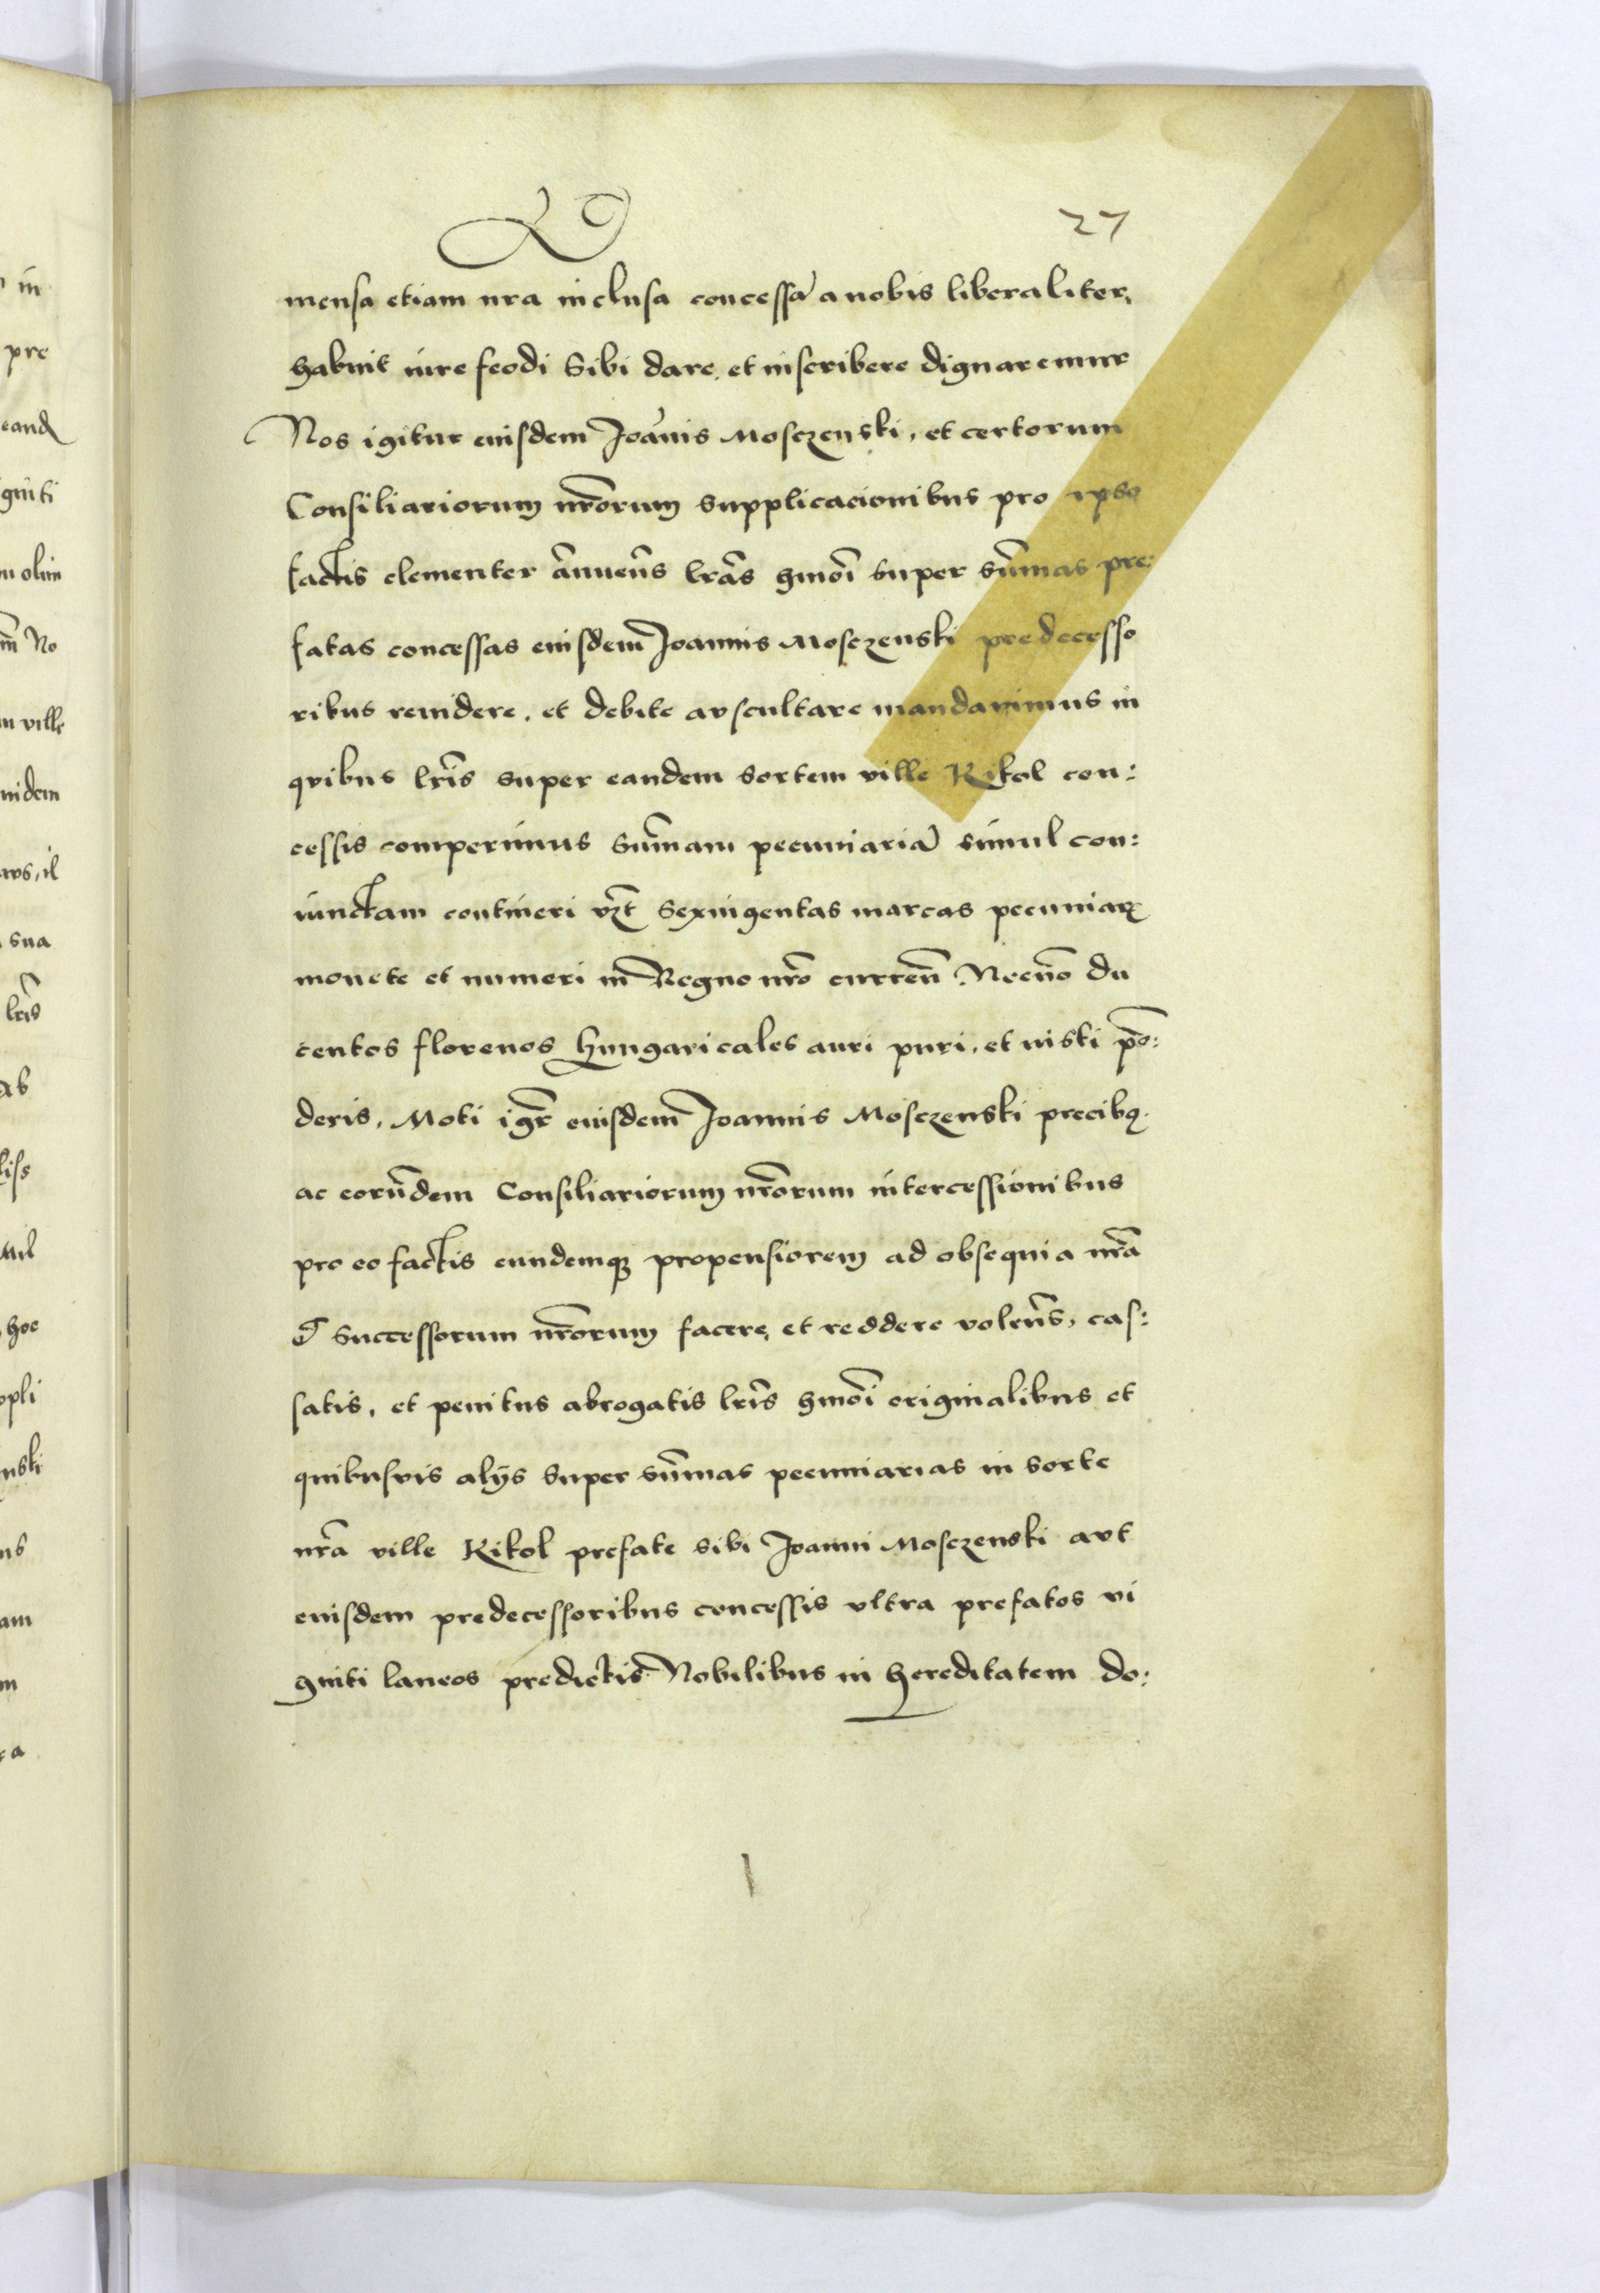 27
mensa etiam nra inclusa concessā a nobis liberaliter,
habuit iure feodi Sibi dare, et inscribere dignaremur
Nos igitur eiusdem Joānis Mosczenski, et certorum
Consiliariorum nr̄orum supplicacionibus pro ipso
factis clementer ānuen̄s lr̄as hmōi super sum̄as pre:
fatas concessas eiusdem Joannis Mosczenski predecesso
ribus reuidere, et debite avscultare mandauimus in
qvibus lr̄is super eandem sortem ville Kikol con:
cessis comperimus sum̄am pecuniariā simul con:
iunctam contineri vz̄t Sexingentas marcas pecuniaꝝ
monete et numeri in Regno nr̄o curren̄ Necn̄o du
centos florenos hungaricales auri puri, et iusti pō:
deris, Moti igr̄ eiusdem Joannis Mosczenski precibꝫ
ac eorūdem Consiliariorum nr̄orum intercessionibus
pro eo factis eundemqꝫ propensiorem ad obsequia nr̄a
et Successorum nr̄orum facere, et reddere volen̄s, cas:
satis, et penitus abrogatis lr̄is hmōi originalibus et
quibusvis alijs Super sum̄as pecuniarias in sorte
nr̄a ville Kikol prefate sibi Joanni Mosczenski avt
eiusdem predecessoribus concessis vltra prefatos vi
ginti laneos predictis Nobilibus in hereditatem do:
in
pre
eandꝫ
ginti
m olim
No
m ville
uidem
avs, il
sua
lr̄is
ab
liss
hoc
ppli
nski
ns
am
m